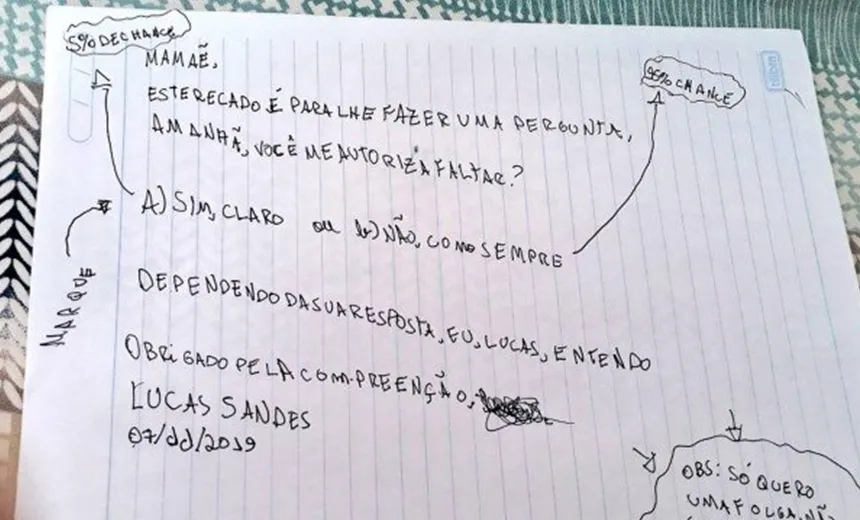 5% DE CHANCE
MAMAÊ,
95% CHANCE
tilibra
ESTE RECADO É PARA LHE FAZER UMA PERGUNTA,
AMANHÃ, VOCÊ ME AUTORIZA FALTAR?
A) SIM, CLARO ou b) NÃO, COMO SEMPRE
MARQUE
DEPENDENDO DA SUA RESPOSTA, EU, LUCAS, ENTENDO
OBRIGADO PELA COMPREENÇÃO,
LUCAS SANDES
07/11/2019
OBS: SÓ QUERO
UMA FOLGA, NÃO